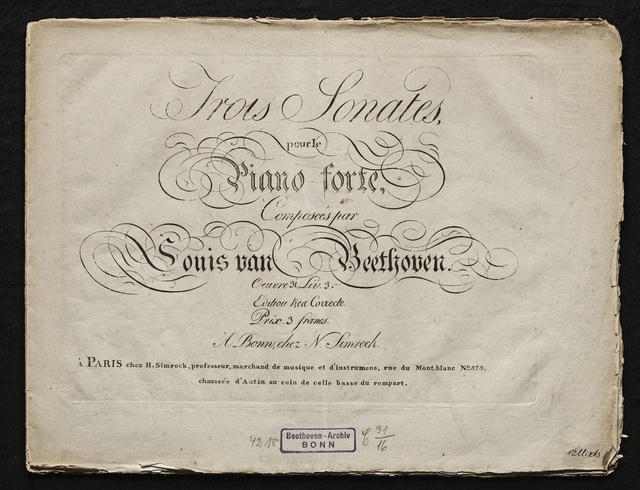 Trois Sonates,
pour le
Piano forte,
Composées par
Louis van Beethoven.
Oeuvre 31 Liv. 3.
Edition tres Correcte.
Prix 3 francs.
À Bonn, chez N. Simrock.
à PARIS chez H. Simrock, professeur, marchand de musique et d'instrumens, rue du Mont-blanc No. 373.
chaussée d'Antin au coin de celle basse du rempart.
Beethoven-Archiv
BONN
31
16